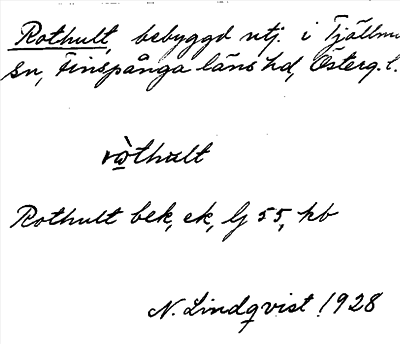 Rothult, bebyggd utj. i Tjällmo
sn, Finspånga läns hd, Österg. l.
ròthult
Rothult bek, ek, lj 55, kb
N. Lindqvist 1928